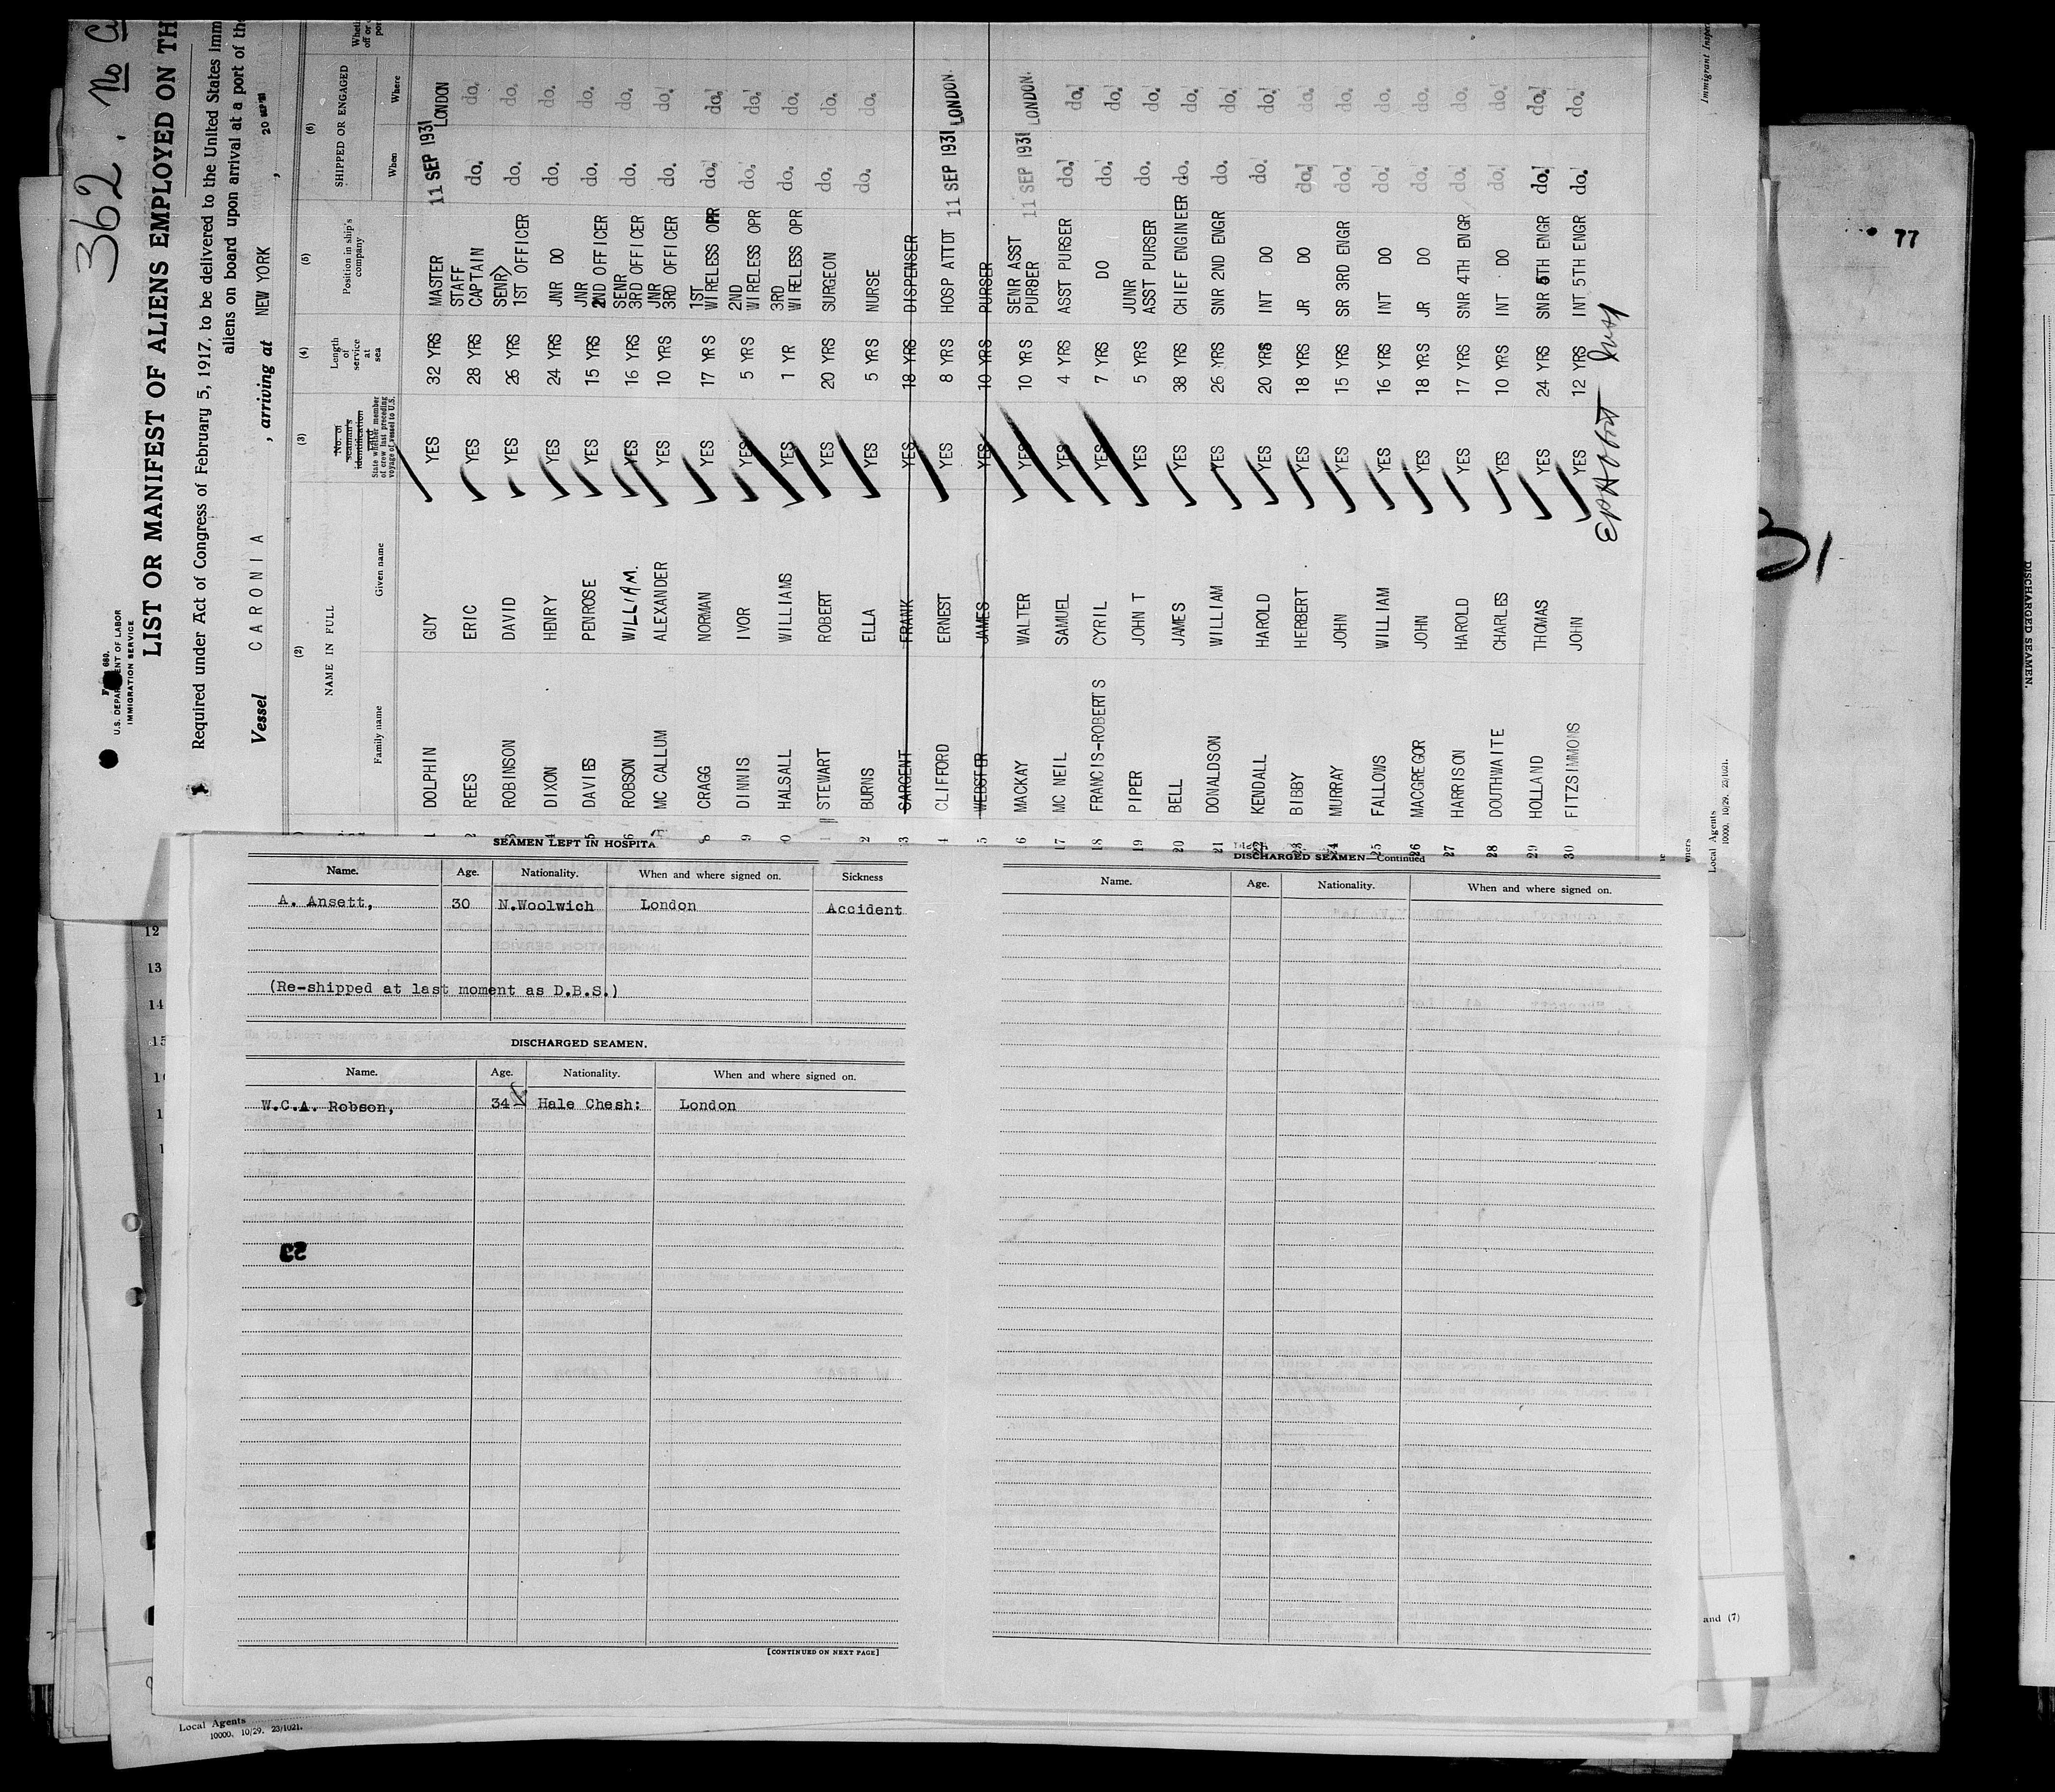 362. No
F 680.
U.S. DEPARTMENT OF LABOR
IMMIGRATION SERVICE
LIST OR MANIFEST OF ALIENS EMPLOYED ON TH
Required under Act of Congress of February 5, 1917, to be delivered to the United States Imm
aliens on board upon arrival at a port of the
Vessel CARONIA , arriving at NEW YORK , 20 SEP
(2) (3) (4) (5) (6)
NAME IN FULL
Family name Given name
No. of seaman's identification card
State whether member of crew last preceding voyage of vessel to U.S.
Length of service at sea
Position in ship's company
SHIPPED OR ENGAGED
When Where
1 DOLPHIN GUY YES 32 YRS MASTER 11 SEP 1931 LONDON
2 REES ERIC YES 28 YRS STAFF CAPTAIN do. do.
3 ROBINSON DAVID YES 26 YRS SENR 1ST OFFICER do. do.
4 DIXON HENRY YES 24 YRS JNR DO do. do.
5 DAVIES PENROSE YES 15 YRS JNR 2ND OFFICER do. do.
6 ROBSON WILLIAM. YES 16 YRS SENR 3RD OFFICER do. do.
MC CALLUM ALEXANDER YES 10 YRS JNR 3RD OFFICER do. do.
8 CRAGG NORMAN YES 17 YRS 1ST WIRELESS OPR do. do.
9 DINNIS IVOR YES 5 YRS 2ND WIRELESS OPR do. do.
0 HALSALL WILLIAMS YES 1 YR 3RD WIRELESS OPR do. do.
1 STEWART ROBERT YES 20 YRS SURGEON do. do.
2 BURNS ELLA YES 5 YRS NURSE do. do.
3 SARGENT FRANK YES 18 YRS DISPENSER
4 CLIFFORD ERNEST YES 8 YRS HOSP ATTDT 11 SEP 1931 LONDON.
5 WEBSTER JAMES YES 10 YRS PURSER
6 MACKAY WALTER YES 10 YRS SENR ASST PURSER 11 SEP 1931 LONDON.
17 MC NEIL SAMUEL YES 4 YRS ASST PURSER do. do.
18 FRANCIS-ROBERTS CYRIL YES 7 YRS DO do. do.
19 PIPER JOHN T YES 5 YRS JUNR ASST PURSER do. do.
20 BELL JAMES YES 38 YRS CHIEF ENGINEER do. do.
21 DONALDSON WILLIAM YES 26 YRS SNR 2ND ENGR do. do.
22 KENDALL HAROLD YES 20 YRS INT DO do. do.
23 BIBBY HERBERT YES 18 YRS JR DO do. do.
24 MURRAY JOHN YES 15 YRS SR 3RD ENGR do. do.
25 FALLOWS WILLIAM YES 16 YRS INT DO do. do.
26 MACGREGOR JOHN YES 18 YRS JR DO do. do.
27 HARRISON HAROLD YES 17 YRS SNR 4TH ENGR do. do.
28 DOUTHWAITE CHARLES YES 10 YRS INT DO do. do.
29 HOLLAND THOMAS YES 24 YRS SNR 5TH ENGR do. do.
30 FITZSIMMONS JOHN YES 12 YRS INT 5TH ENGR do. do.
Immigrant Inspe
Local Agents
10000. 10/29. 23/1021.
77
DISCHARGED SEAMEN.
SEAMEN LEFT IN HOSPITA
Name. Age. Nationality. When and where signed on. Sickness
A. Ansett, 30 N.Woolwich London Accident
(Re-shipped at last moment as D.B.S.)
DISCHARGED SEAMEN.
Name. Age. Nationality. When and where signed on.
W.C.A. Robson, 34 Hale Chesh: London
[CONTINUED ON NEXT PAGE]
DISCHARGED SEAMEN—Continued
Name. Age. Nationality. When and where signed on.
12
13
14
15
and (7)
Local Agents
10000. 10/29. 23/1021.